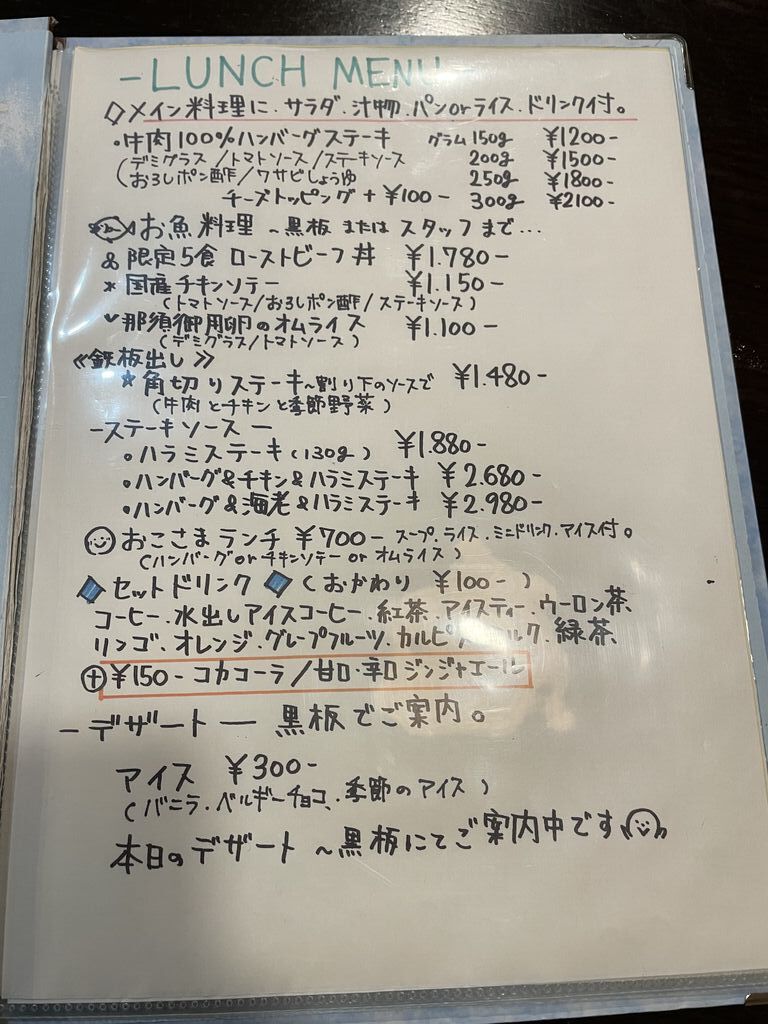 -LUNCH MENU-
◇メイン料理に、サラダ、汁物、パンorライス、ドリンク付。
・牛肉100%ハンバーグステーキ グラム 150g ¥1200-
(デミグラス/トマトソース/ステーキソース 200g ¥1500-
(おろしポン酢/ワサビしょうゆ 250g ¥1800-
チーズトッピング+¥100- 300g ¥2100-
お魚料理 ~黒板 または スタッフまで...
限定5食 ローストビーフ丼 ¥1.780-
*国産チキンソテー ¥1.150-
(トマトソース/おろしポン酢/ステーキソース)
那須御用卵のオムライス ¥1.100-
(デミグラス/トマトソース)
≪鉄板出し≫
★角切りステーキ~割り下のソースで ¥1.480-
(牛肉とチキンと季節野菜)
-ステーキソース-
・ハラミステーキ(130g) ¥1.880-
・ハンバーグ&チキン&ハラミステーキ ¥2.680-
・ハンバーグ&海老&ハラミステーキ ¥2.980-
おこさまランチ ¥700- スープ、ライス、ミニドリンク、アイス付。
(ハンバーグorチキンソテーorオムライス)
◆セットドリンク◆(おかわり ¥100-)
コーヒー、水出しアイスコーヒー、紅茶、アイスティー、ウーロン茶、
リンゴ、オレンジ、グレープフルーツ、カルピス、ミルク、緑茶
⊕¥150- コカコーラ/甘口・辛口ジンジャエール
-デザート- 黒板でご案内。
アイス ¥300-
(バニラ、ベルギーチョコ、季節のアイス)
本日のデザート ~黒板にてご案内中です